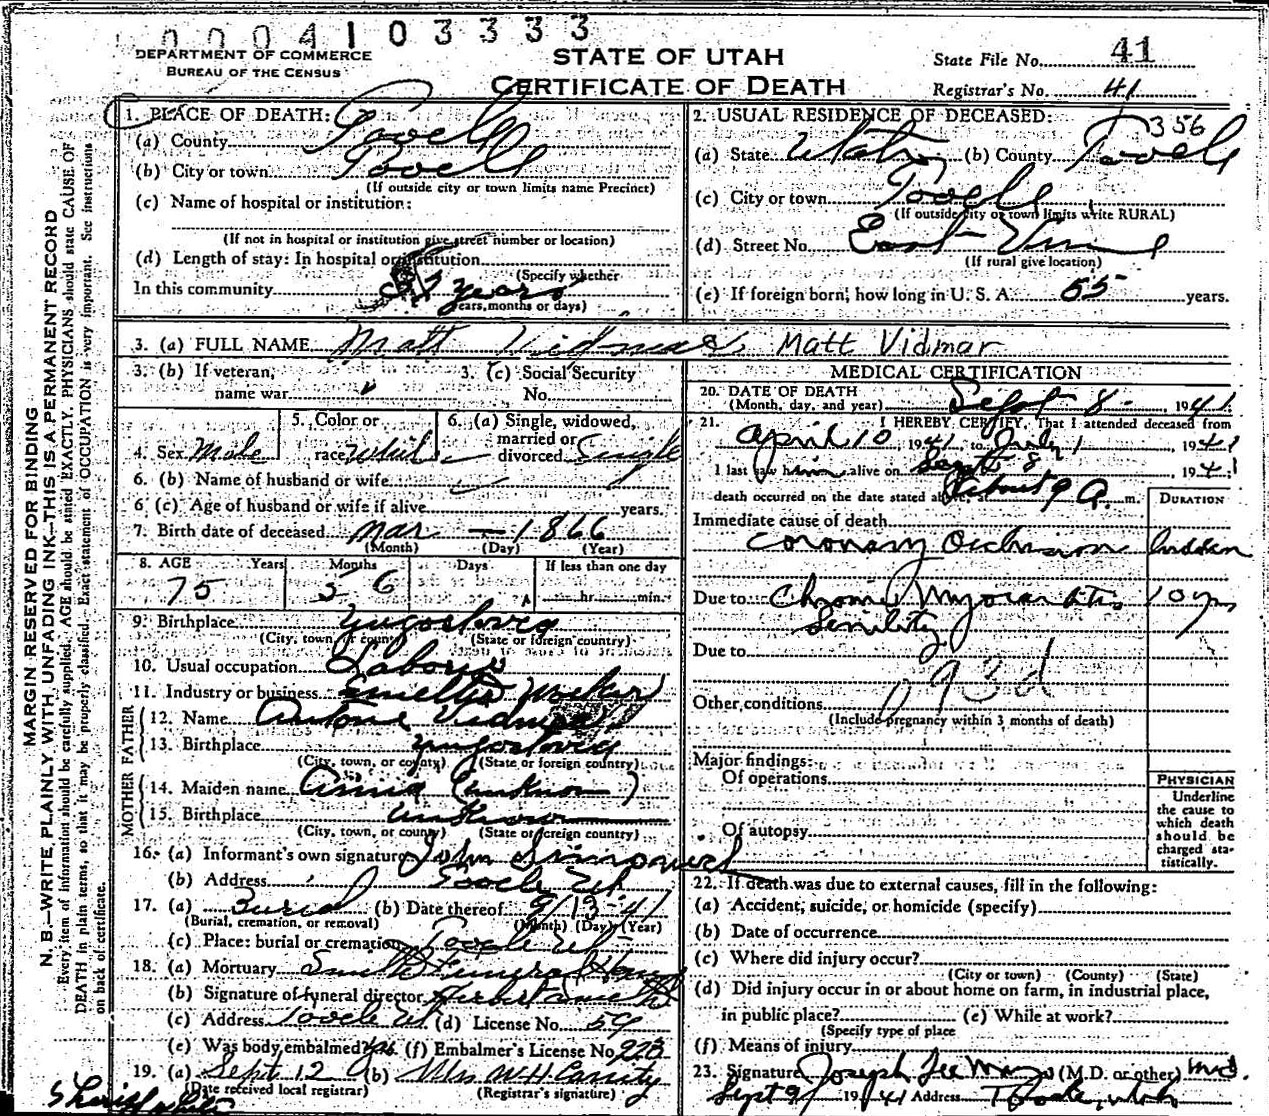 0004103333
DEPARTMENT OF COMMERCE
BUREAU OF THE CENSUS
STATE OF UTAH
CERTIFICATE OF DEATH
State File No. 41
Registrar's No. 41
MARGIN RESERVED FOR BINDING
N. B.—WRITE PLAINLY, WITH UNFADING INK—THIS IS A PERMANENT RECORD
Every item of information should be carefully supplied. AGE should be stated EXACTLY. PHYSICIANS should state CAUSE OF
DEATH in plain terms, so that it may be properly classified. Exact statement of OCCUPATION is very important. See instructions
on back of certificate.
1. PLACE OF DEATH:
(a) County Tooele
(b) City or town Tooele
(If outside city or town limits name Precinct)
(c) Name of hospital or institution:
(If not in hospital or institution give street number or location)
(d) Length of stay: In hospital or institution
(Specify whether
In this community years
years, months or days)
2. USUAL RESIDENCE OF DECEASED:
356
(a) State Utah (b) County Tooele
(c) City or town Tooele
(If outside city or town limits write RURAL)
(d) Street No. East Vine
(If rural give location)
(e) If foreign born, how long in U. S. A. 55 years.
3. (a) FULL NAME Matt Vidmar Matt Vidmar
3. (b) If veteran,
name war
3. (c) Social Security
No.
4. Sex Male
5. Color or
race White
6. (a) Single, widowed,
married or
divorced Single
6. (b) Name of husband or wife
6 (c) Age of husband or wife if alive years.
7. Birth date of deceased Mar — 1866
(Month) (Day) (Year)
8. AGE Years Months Days If less than one day
75 5 6 hr. min.
9. Birthplace Yugoslovia
(City, town or county) (State or foreign country)
10. Usual occupation Laborer
11. Industry or business Smelter Worker
FATHER
12. Name Antone Vidmar
13. Birthplace Yugoslovia
(City, town, or county) (State or foreign country)
MOTHER
14. Maiden name Annie (unknown)
15. Birthplace unknown
(City, town, or county) (State or foreign country)
16. (a) Informant's own signature John
(b) Address Tooele Ut
17. (a) Burial (b) Date thereof 9/13-41
(Burial, cremation, or removal) (Month) (Day) (Year)
(c) Place: burial or cremation Tooele Ut
18. (a) Mortuary Funeral Home
(b) Signature of funeral director
(c) Address Tooele Ut (d) License No. 59
(e) Was body embalmed? yes (f) Embalmer's License No. 223
19. (a) Sept 12 (b) Mrs W.H.
(Date received local registrar) (Registrar's signature)
MEDICAL CERTIFICATION
20. DATE OF DEATH
(Month, day, and year) Sept 8- , 1941
21. I HEREBY CERTIFY, That I attended deceased from
April 10, 1941 to , 1941
I last saw him alive on Sept 8, 1941
death occurred on the date stated above at about 9 A. m.
DURATION
Immediate cause of death
Coronary Occlusion sudden
Due to Chronic Myocarditis 10 yrs
Senility
Due to
93d
Other conditions
(Include pregnancy within 3 months of death)
Major findings:
Of operations
Of autopsy
PHYSICIAN
Underline
the cause to
which death
should be
charged sta-
tistically.
22. If death was due to external causes, fill in the following:
(a) Accident, suicide, or homicide (specify)
(b) Date of occurrence
(c) Where did injury occur?
(City or town) (County) (State)
(d) Did injury occur in or about home on farm, in industrial place,
in public place? (e) While at work?
(Specify type of place
(f) Means of injury
23. Signature Joseph Lee (M.D. or other) M.D.
Sept 9 1941 Address Tooele, Utah